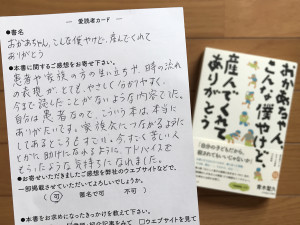 愛読者カード
●書名
おかあちゃん、こんな僕やけど、産んでくれて
ありがとう
●本書に関するご感想をお寄せ下さい。
患者や家族の方の生い立ちや、時の流れ
の表現が、とても、やさしく分かりやすく、
今まで読んだことがないような内容でした。
自分は患者なので、こういう本は、本当に
ありがたいです。家族会につながるように
してあるところもすごい。今、すごく苦しい人
とかに、助けになれるように、アドバイスを
もらったような気持ちになれました。
●お寄せいただきましたご感想を弊社のウエブサイトなどで、
一部掲載させていただいてよろしいでしょうか。
（可　　匿名で可　　不可）
●本書をお求めになったきっかけを教えて下さい。
□ウエブサイトを見て
おかあちゃん、
こんな僕やけど、
産んでくれて
ありがとう